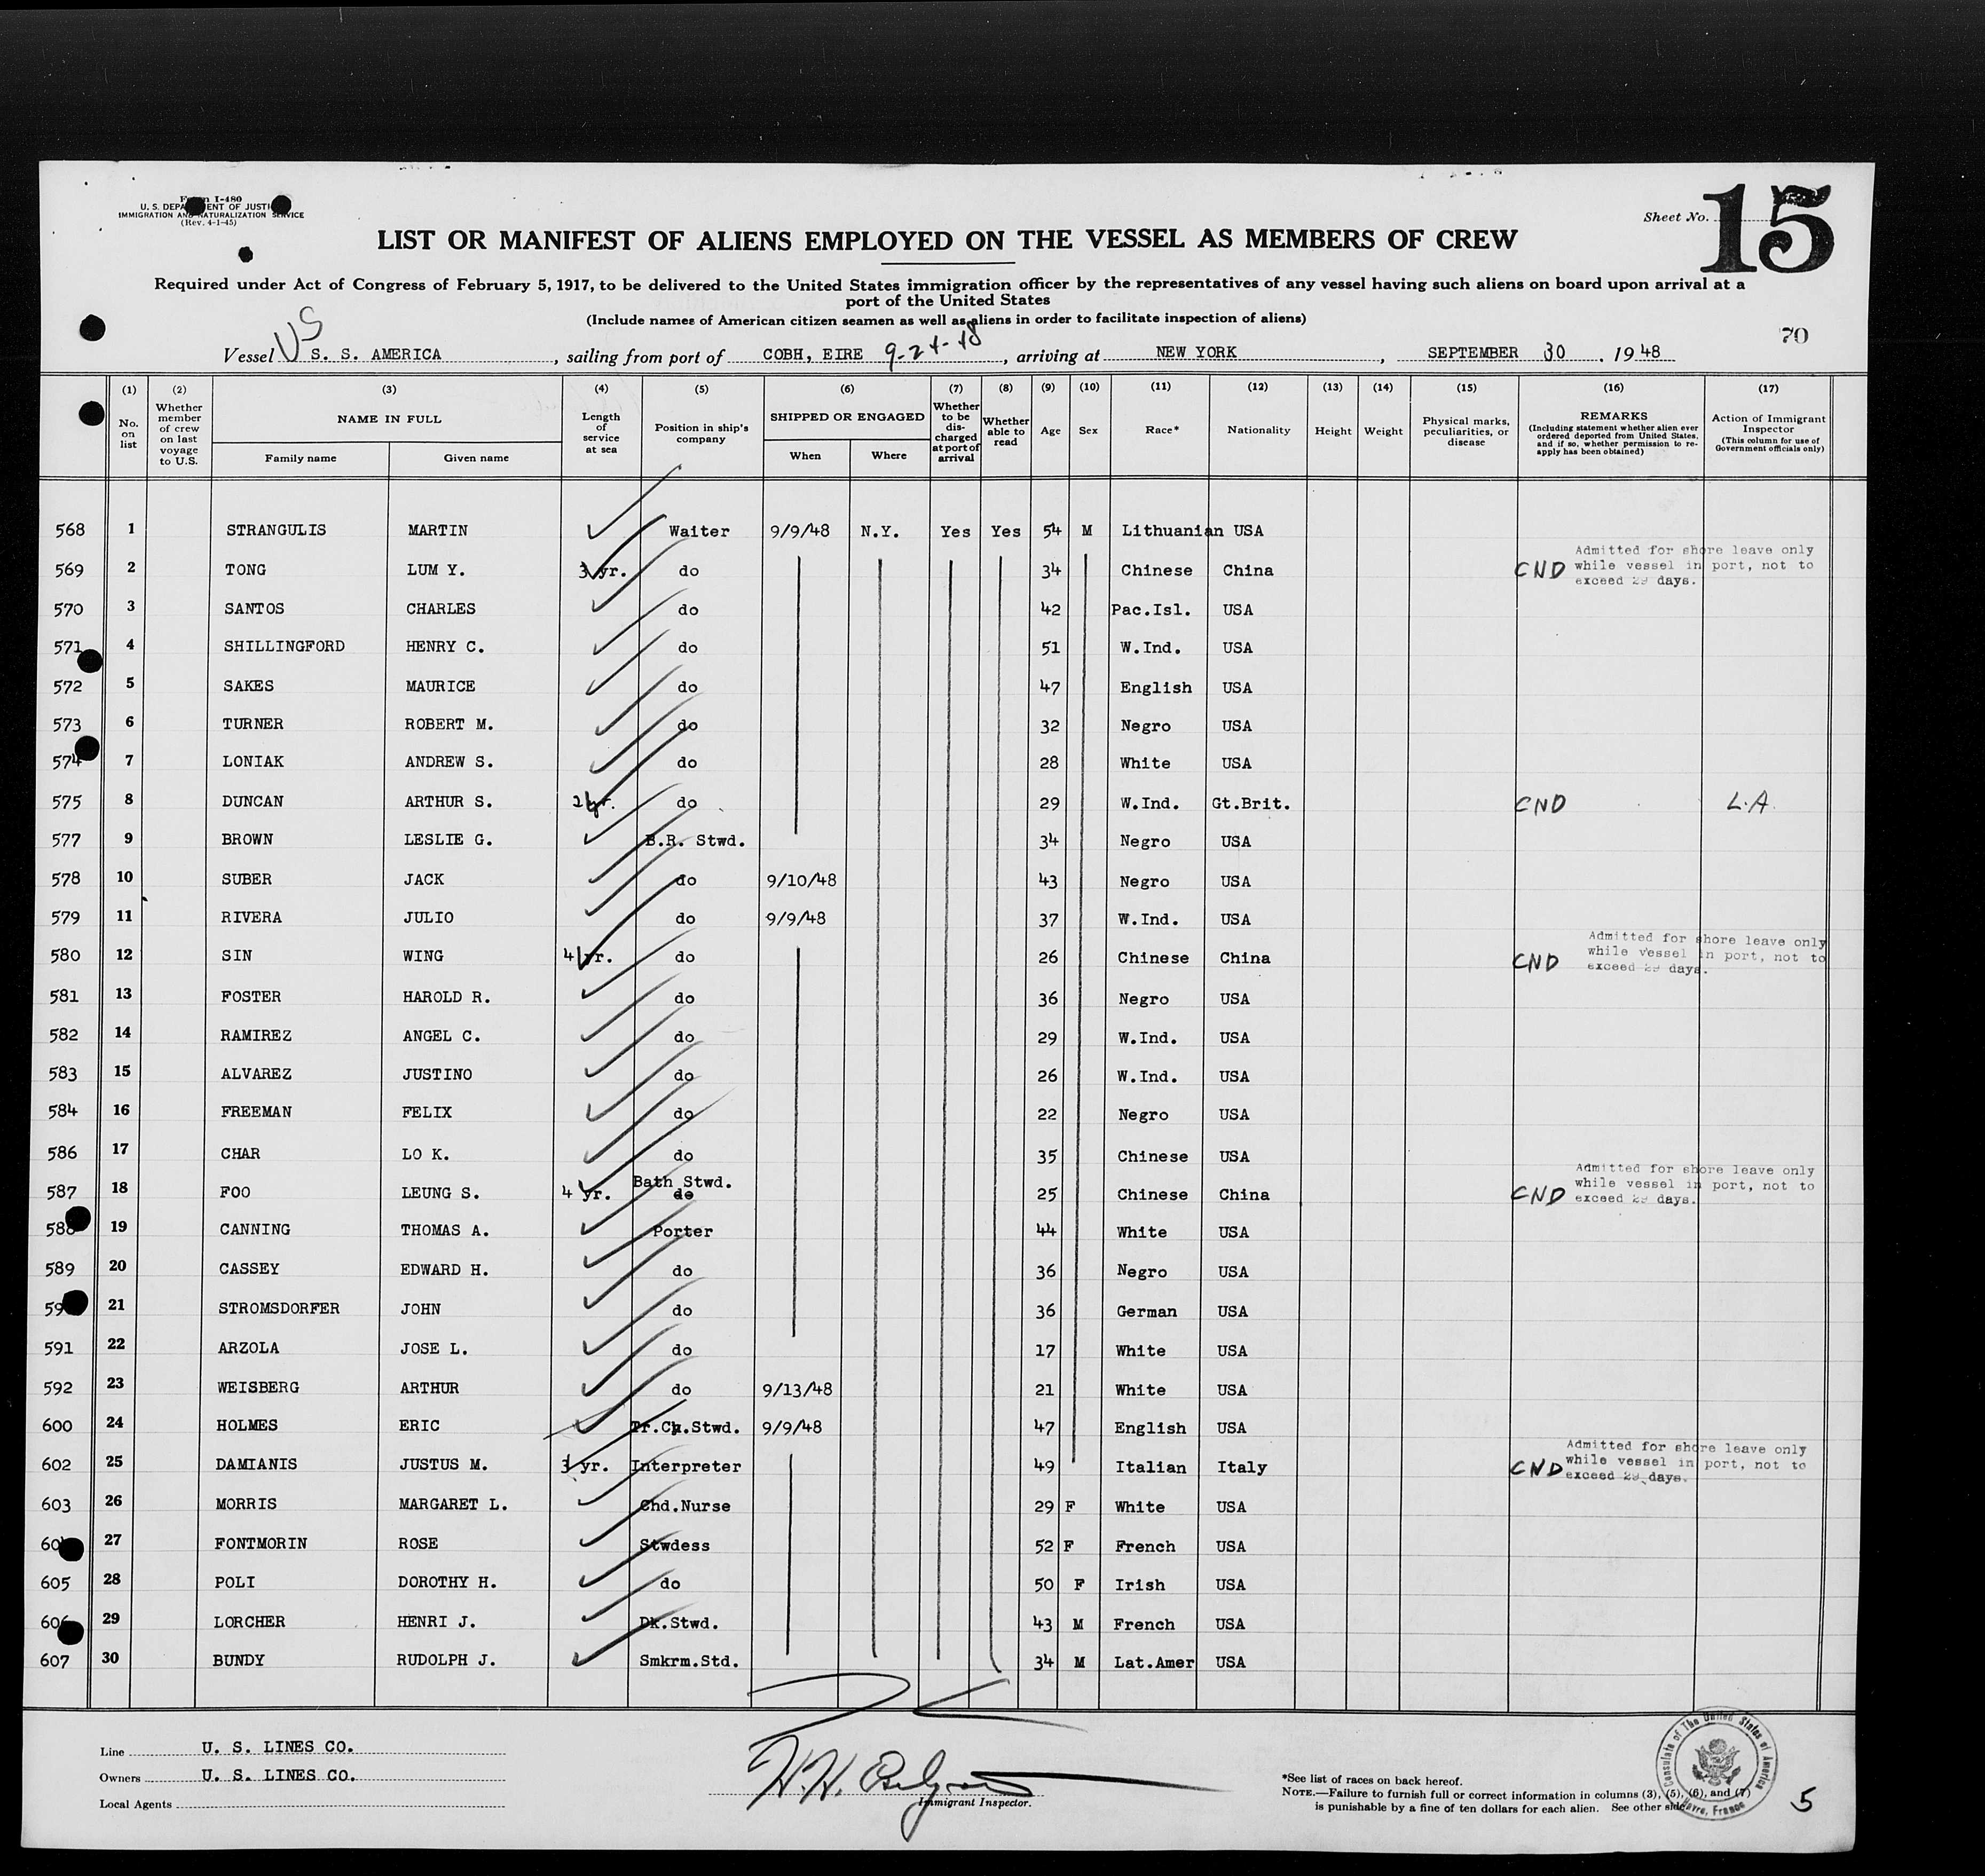 Form I-480
U. S. DEPARTMENT OF JUSTICE
IMMIGRATION AND NATURALIZATION SERVICE
(Rev. 4-1-45)
Sheet No. 15
LIST OR MANIFEST OF ALIENS EMPLOYED ON THE VESSEL AS MEMBERS OF CREW
Required under Act of Congress of February 5, 1917, to be delivered to the United States immigration officer by the representatives of any vessel having such aliens on board upon arrival at a
port of the United States
(Include names of American citizen seamen as well as aliens in order to facilitate inspection of aliens)
70
US
Vessel S. S. AMERICA, sailing from port of COBH, EIRE 9-24-48, arriving at NEW YORK, SEPTEMBER 30, 1948
(1) (2) (3) (4) (5) (6) (7) (8) (9) (10) (11) (12) (13) (14) (15) (16) (17)
No. on list
Whether member of crew on last voyage to U.S.
NAME IN FULL
Family name Given name
Length of service at sea
Position in ship's company
SHIPPED OR ENGAGED
When Where
Whether to be discharged at port of arrival
Whether able to read
Age Sex Race* Nationality Height Weight
Physical marks, peculiarities, or disease
REMARKS
(Including statement whether alien ever ordered deported from United States, and if so, whether permission to re-apply has been obtained)
Action of Immigrant Inspector
(This column for use of Government officials only)
568 1 STRANGULIS MARTIN Waiter 9/9/48 N.Y. Yes Yes 54 M Lithuanian USA
569 2 TONG LUM Y. 3 yr. do 34 Chinese China CND Admitted for shore leave only while vessel in port, not to exceed 29 days.
570 3 SANTOS CHARLES do 42 Pac.Isl. USA
571 4 SHILLINGFORD HENRY C. do 51 W.Ind. USA
572 5 SAKES MAURICE do 47 English USA
573 6 TURNER ROBERT M. do 32 Negro USA
574 7 LONIAK ANDREW S. do 28 White USA
575 8 DUNCAN ARTHUR S. 2 yr. do 29 W.Ind. Gt.Brit. CND L.A.
577 9 BROWN LESLIE G. B.R. Stwd. 34 Negro USA
578 10 SUBER JACK do 9/10/48 43 Negro USA
579 11 RIVERA JULIO do 9/9/48 37 W.Ind. USA
580 12 SIN WING 4 yr. do 26 Chinese China CND Admitted for shore leave only while vessel in port, not to exceed 29 days.
581 13 FOSTER HAROLD R. do 36 Negro USA
582 14 RAMIREZ ANGEL C. do 29 W.Ind. USA
583 15 ALVAREZ JUSTINO do 26 W.Ind. USA
584 16 FREEMAN FELIX do 22 Negro USA
586 17 CHAR LO K. do 35 Chinese USA
587 18 FOO LEUNG S. 4 yr. Bath Stwd. do 25 Chinese China CND Admitted for shore leave only while vessel in port, not to exceed 29 days.
588 19 CANNING THOMAS A. Porter 44 White USA
589 20 CASSEY EDWARD H. do 36 Negro USA
59 21 STROMSDORFER JOHN do 36 German USA
591 22 ARZOLA JOSE L. do 17 White USA
592 23 WEISBERG ARTHUR do 9/13/48 21 White USA
600 24 HOLMES ERIC Tr.Ch.Stwd. 9/9/48 47 English USA
602 25 DAMIANIS JUSTUS M. 3 yr. Interpreter 49 Italian Italy CND Admitted for shore leave only while vessel in port, not to exceed 29 days.
603 26 MORRIS MARGARET L. Chd.Nurse 29 F White USA
60 27 FONTMORIN ROSE Stwdess 52 F French USA
605 28 POLI DOROTHY H. do 50 F Irish USA
606 29 LORCHER HENRI J. Dk.Stwd. 43 M French USA
607 30 BUNDY RUDOLPH J. Smkrm.Std. 34 M Lat.Amer USA
Line U. S. LINES CO.
Owners U. S. LINES CO.
Local Agents
H.H.
Immigrant Inspector.
*See list of races on back hereof.
NOTE.—Failure to furnish full or correct information in columns (3), (5), (6), and (7)
is punishable by a fine of ten dollars for each alien. See other side
Consulate of The United States of America
Havre, France
5